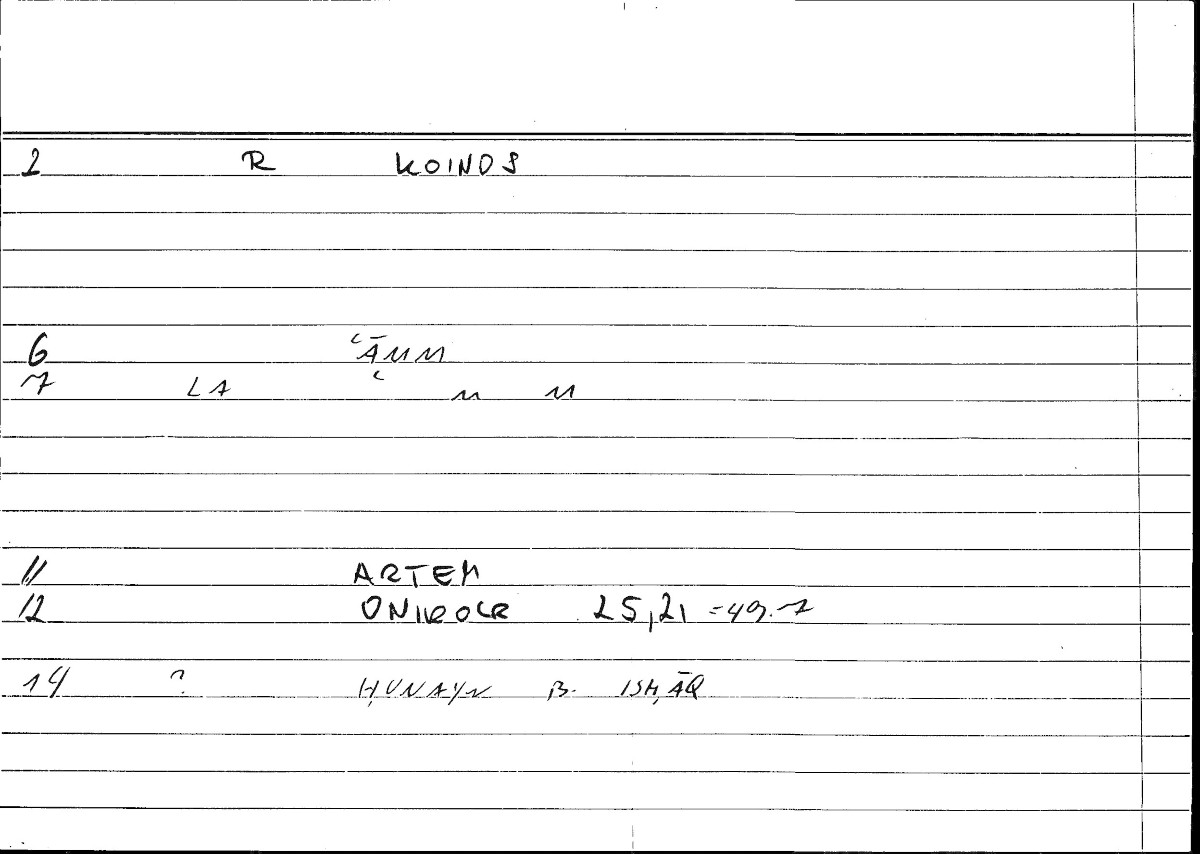 2 R KOINOS
6 ʿĀMM
7 LA ʿ " "
11 ARTEM
12 ONIROCR 25,21 = 49.7
14 ? ḤUNAYN B. ISḤĀQ